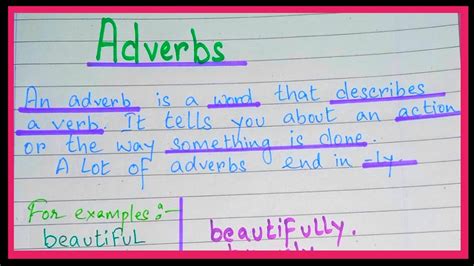 Adverbs
An adverb is a word that describes
a verb. It tells you about an action
or the way something is done.
A Lot of adverbs end in -ly.
For examples:-
beautiful beautifully.